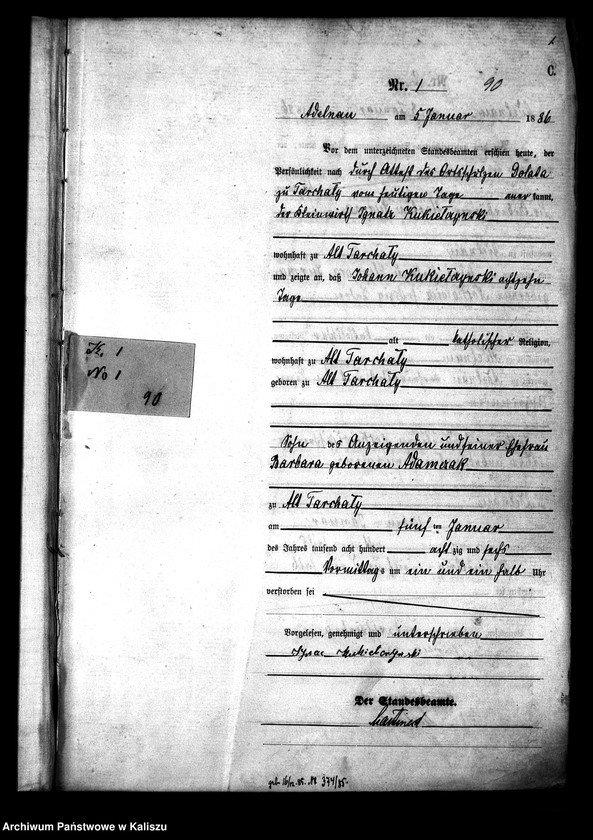 C.
Nr. 1 90
Adelnau am 5 Januar 1886
Vor dem unterzeichneten Standesbeamten erschien heute, der
Persönlichkeit nach durch Attest des Ortsschulzen
zu Tarchaly vom heutigen Tage anerkannt,
der Kleinwirth Ignatz
wohnhaft zu Alt Tarchaly
und zeigte an, daß Johann achtzehn
Tage
alt katholischer Religion,
wohnhaft zu Alt Tarchaly
geboren zu Alt Tarchaly
Sohn des Anzeigenden und seiner Ehefrau
Barbara geborenen Adamczak
zu Alt Tarchaly
am fünften Januar
des Jahres tausend acht hundert achtzig und sechs
Vormittags um ein und ein halb Uhr
verstorben sei
Vorgelesen, genehmigt und unterschrieben
Der Standesbeamte.
K. 1
No 1
90
geb. 16/12. 85. Nr. 374/85.
Archiwum Państwowe w Kaliszu